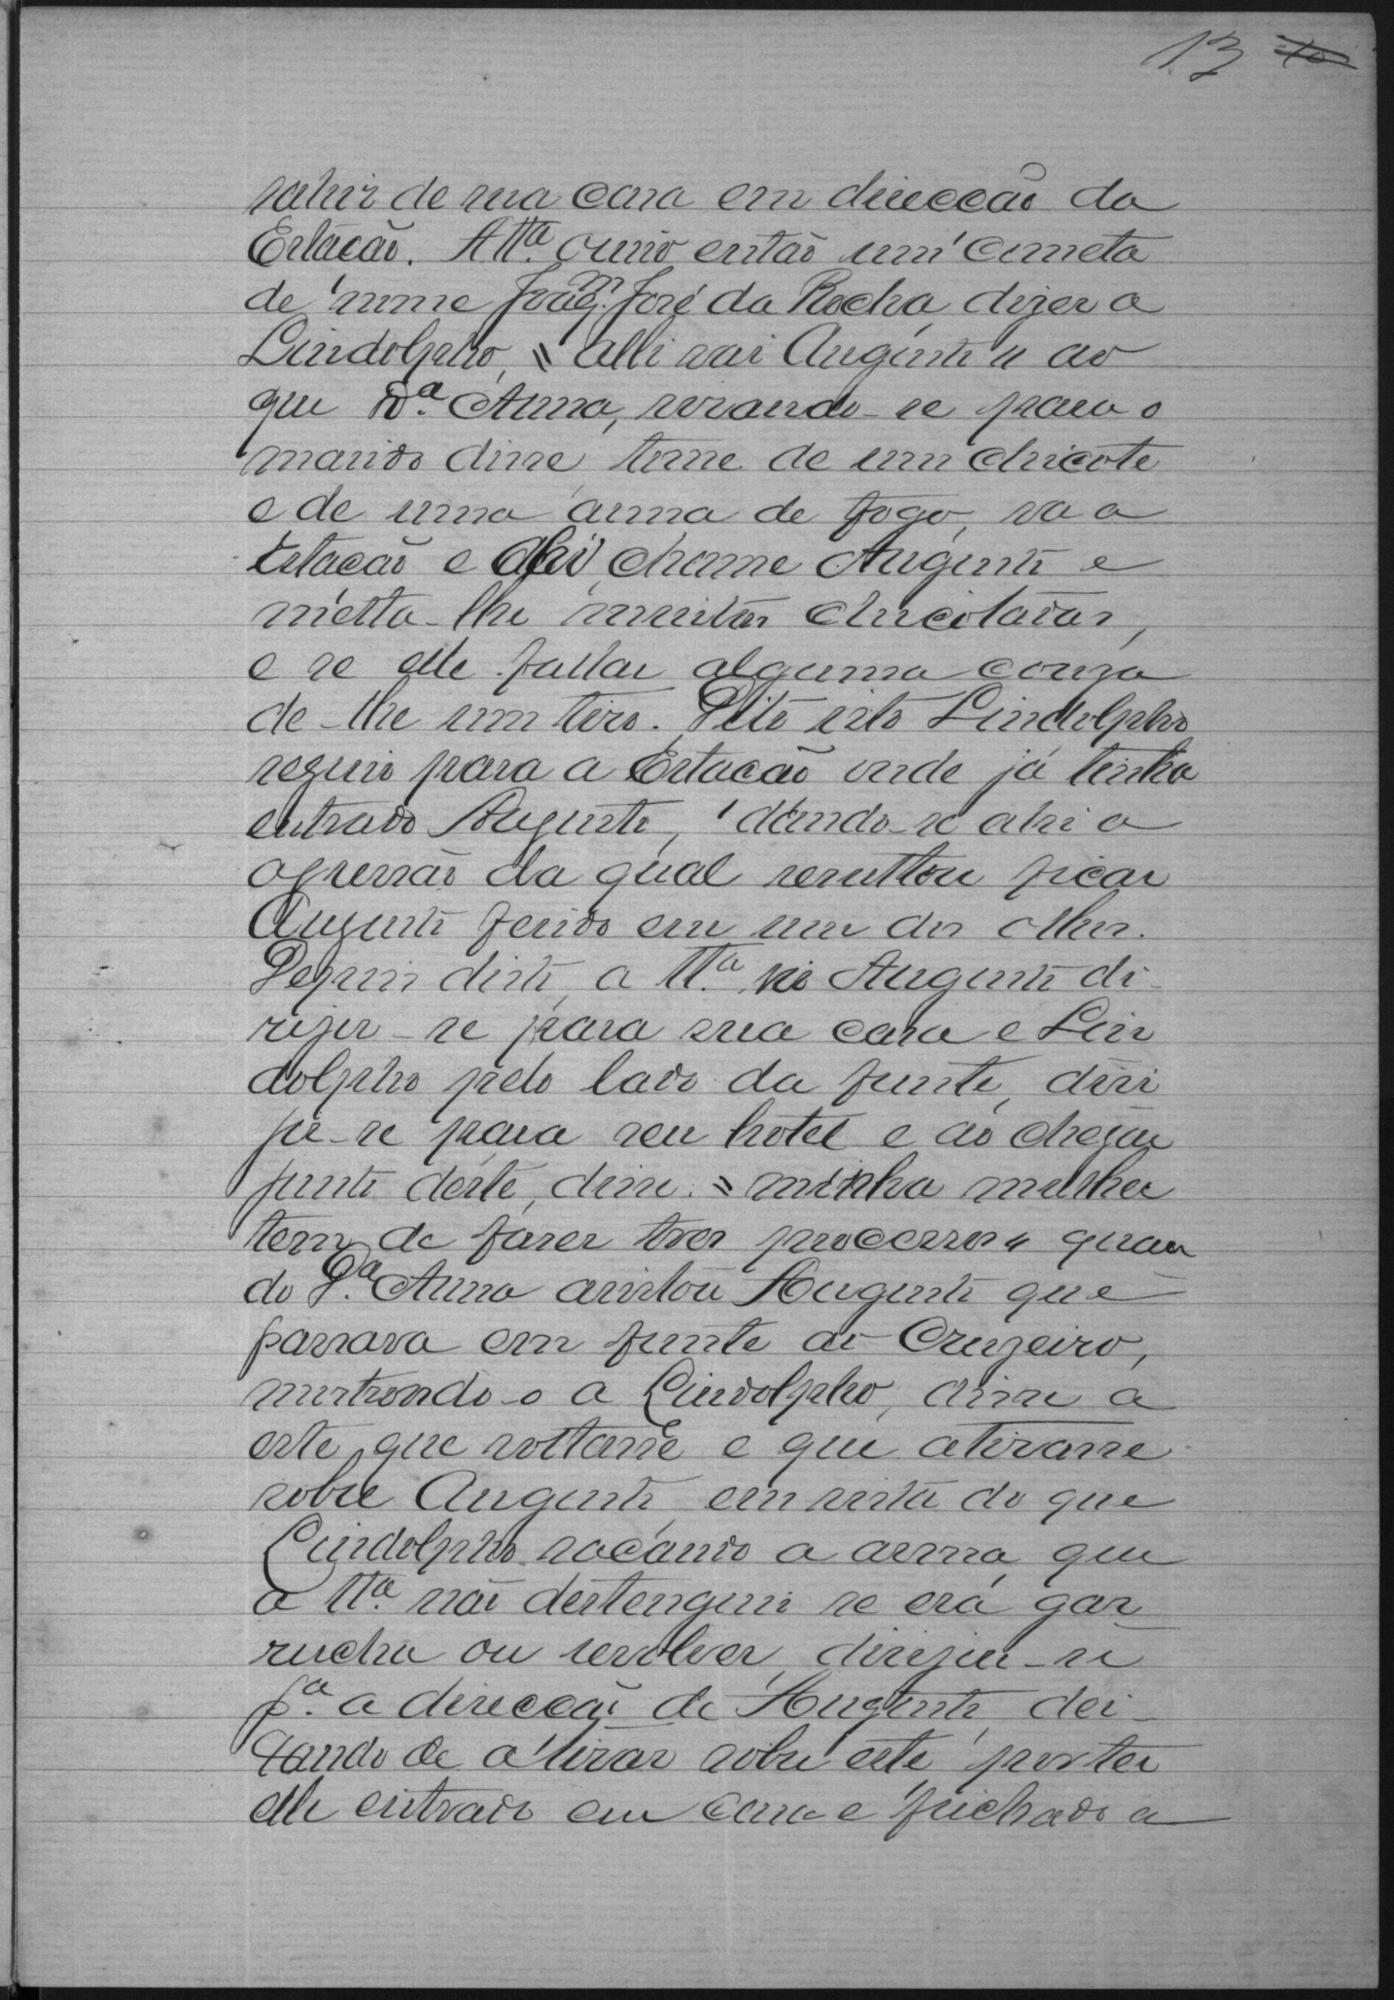 13 10
sahir de sua casa em direcção da
Estação. A Tt.ª ouvio então um cometa
de nome Joaq.m José da Rocha, dizer a
Lindolpho, = alli vai Augusto = ao
que D.ª Anna, virando-se para o
marido disse, tome de um chicote
e de uma arma de fogo, va a
Estação e ahi chame Augusto e
metta-lhe muitas chicotadas,
e se elle fallar alguma couza
de-lhe um tiro. Dito isto Lindolpho
seguio para a Estação onde já tinha
entrado Augusto, dando-se ahi a
agressão da qual resultou ficar
Augusto ferido em um dos olhos.
Depois disto, a Tt.ª vio Augusto di-
rijir-se para sua casa e Lin
dolpho pelo lado da frente, diri
jir-se para seu hotel e ao chegar
junto deste, disse: = minha mulher
tem de fazer tres processos = quan
do D.ª Anna avistou Augusto que
passava em frente ao Cruzeiro,
mostrando-o a Lindolpho, disse a
este que voltasse e que atirasse
sobre Augusto, em vista do que
Lindolpho sacando a arma, que
a Tt.ª não destenguio se era gar
rucha ou revolver, dirijiu-se
p.ª a direcção de Augusto, dei-
xando de atirar sobre este por ter
elle entrado em casa e fechado a